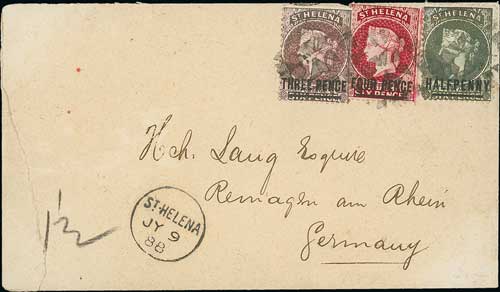 ST HELENA
THREE PENCE
ST HELENA
FOUR PENCE
SIX PENCE
ST HELENA
HALFPENNY
Hch. Lang Esquire
Remagen am Rhein
Germany
ST. HELENA
JY 9
88